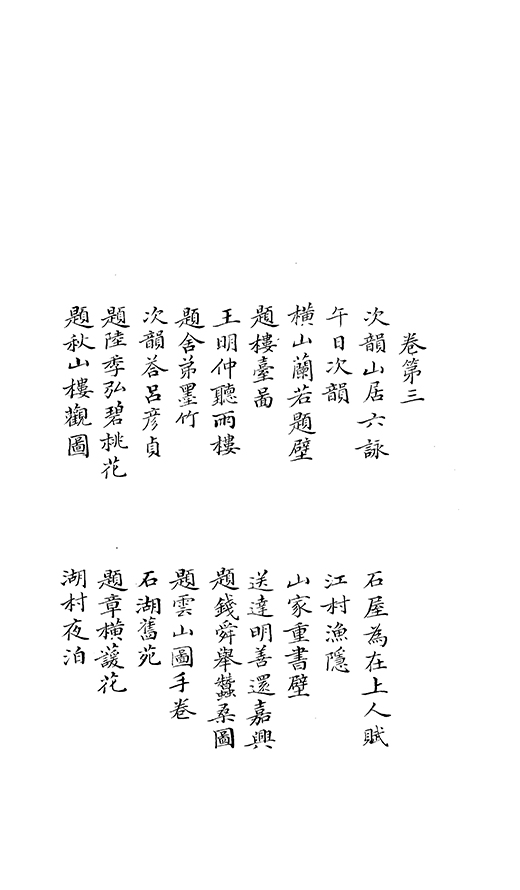 卷第三
次韻山居六詠
石屋為在上人賦
午日次韻
江村漁隱
橫山蘭若題壁
山家重書壁
題樓臺啚
送達明善還嘉興
王明仲聽雨樓
題錢舜舉蠶桒圖
題舍弟墨竹
題雲山圖手卷
次韻荅呂彥貞
石湖舊苑
題陸季弘碧桃花
題章橫護花
題秋山樓觀圖
湖村夜泊